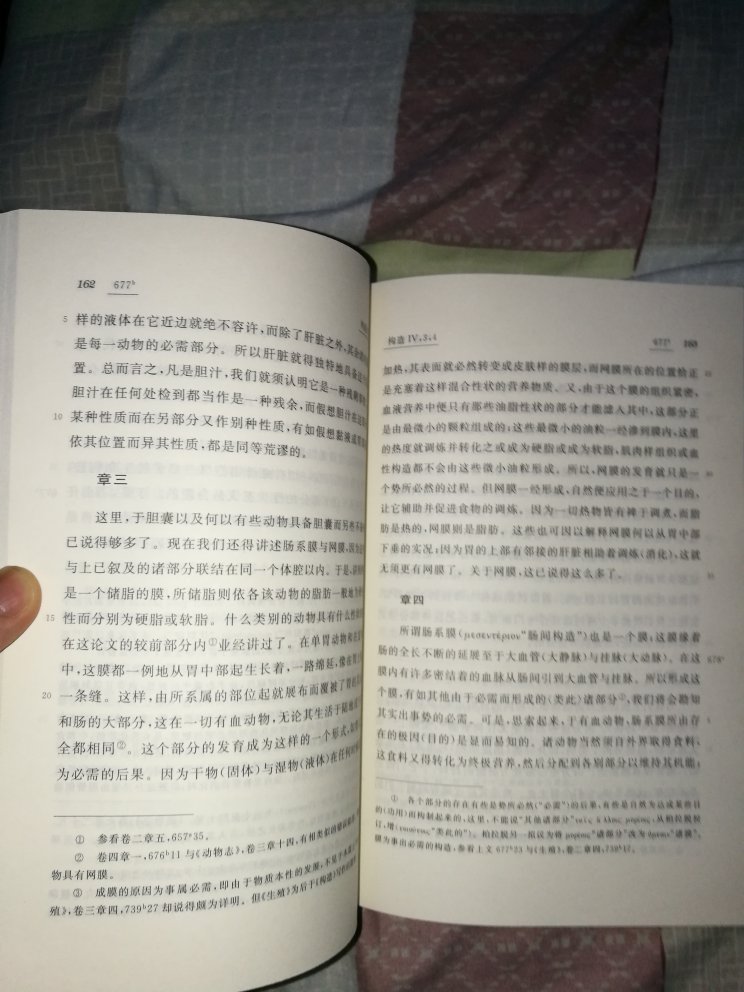 162 677ᵇ
5 样的液体在它近边就绝不容许,而除了肝脏之外,其
是每一动物的必需部分。所以肝脏就得独特地具备
置。总而言之,凡是胆汁,我们就须认明它是一种残
胆汁在任何处检到都当作是一种残余,而假想胆汁在
10 某种性质而在另部分又作别种性质,有如假想黏液或
依其位置而异其性质,都是同等荒谬的。
章三
这里,于胆囊以及何以有些动物具备胆囊而另些不
已说得够多了。现在我们还得讲述肠系膜与网膜,因
与上已叙及的诸部分联结在同一个体腔以内。于是,
是一个储脂的膜,所储脂则依各该动物的脂肪一般地为
15 性而分别为硬脂或软脂。什么类别的动物具有什么性
在这论文的较前部分内①业经讲过了。在单胃动物和
中,这膜都一例地从胃中部起生长着,一路绵延,像在
20 一条缝。这样,由所系属的部位起就展布而覆被了胃
和肠的大部分,这在一切有血动物,无论其生活于陆地
全都相同②。这个部分的发育成为这样的一个形式,
为必需的后果。因为干物(固体)与湿物(液体)在任何
① 参看卷二章五,657ᵃ35。
② 卷四章一,676ᵇ11 与《动物志》,卷三章十四,有相似的
物具有网膜。
③ 成膜的原因为事属必需,即由于物质本性的发展,不见于
殖》,卷三章四,739ᵇ27 却说得颇为详明。但《生殖》为后于《构造》
构造 IV,3,4 163
加热,其表面就必然转变成皮肤样的膜层,而网膜所在的位置恰正
是充塞着这样混合性状的营养物质。又,由于这个膜的组织紧密,
血液营养中便只有那些油脂性状的部分才能滤入其中,这部分正
是由最微小的颗粒组成的;这些最微小的油粒一经渗到膜内,这里
的热度就调炼并转化之或成为硬脂或成为软脂,肌肉样组织或血
性构造都不会由这些微小油粒形成。所以,网膜的发育就只是一
个势所必然的过程。但网膜一经形成,自然便应用之于一个目的,
让它辅助并促进食物的调炼。因为一切热物皆有裨于调煮,而脂
肪是热的,网膜则是脂肪。这些也可因以解释网膜何以从胃中部
下垂的实况;因为胃的上部有邻接的肝脏相助着调炼(消化),这就
无须更有网膜了。关于网膜,这已说得这么多了。
章四
所谓肠系膜(μεσεντέριον“肠间构造”)也是一个膜;这膜缘着
肠的全长不断的延展至于大血管(大静脉)与挂脉(大动脉)。在这
膜内有许多密结着的血脉从肠间引到大血管与挂脉。所以形成这
个膜,有如其他由于必需而形成的(类此)诸部分①,我们将会勘知
其实出事势的必需。可是,思索起来,于有血动物,肠系膜所由存
在的极因(目的)是显而易知的。诸动物当然须自外界取得食料,
这食料又得转化为终极营养,然后分配到各别部分以维持其机能;
① 各个部分的存在有些是势所必然(“必需”)的后果,有些是自然为达成某些目
的(功用)而构制起来的,这里,不能说“其他诸部分”
订,增 “类此的”)。柏拉脱另一拟议为将 “诸部分”改为 “诸膜”,
膜为事出必需的构造,参看上文 677ᵇ23 与《生殖》,卷二章四,739ᵇ17。